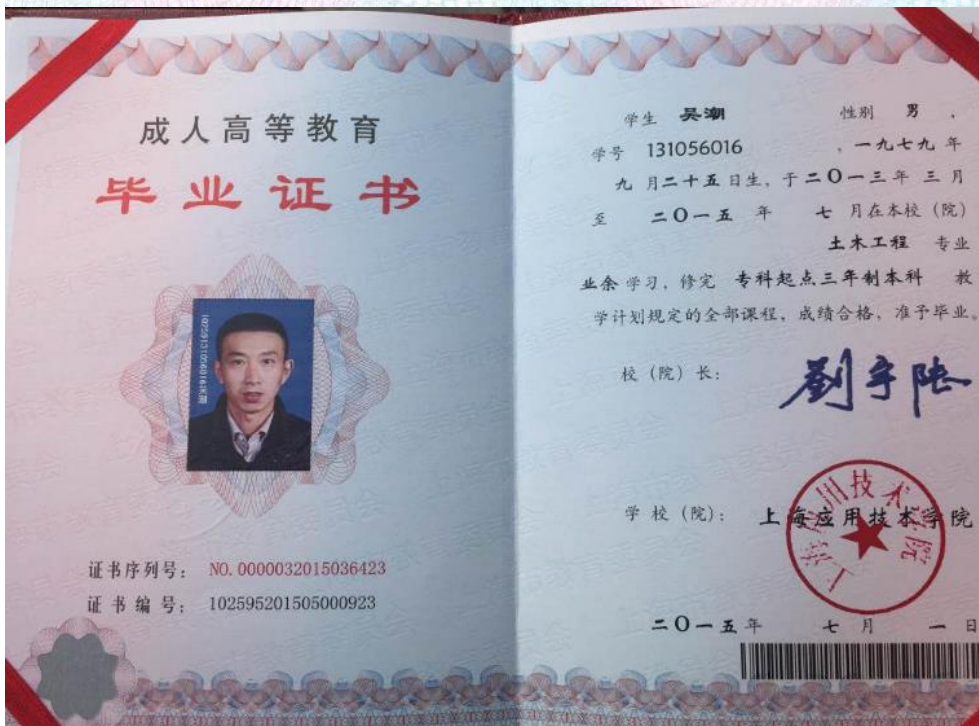 成人高等教育
毕业证书
10259131056016吴潮
证书序列号： NO. 0000032015036423
证书编号： 102595201505000923
学生 吴潮 性别 男 ，
学号 131056016 ，一九七九年
九月二十五日生，于二〇一三年 三月
至 二〇一五 年 七月在本校（院）
土木工程 专业
业余学习，修完 专科起点三年制本科 教
学计划规定的全部课程，成绩合格，准予毕业。
校（院）长：
学校（院）： 上海应用技术学院
上海应用技术学院
二〇一五年 七月 一日